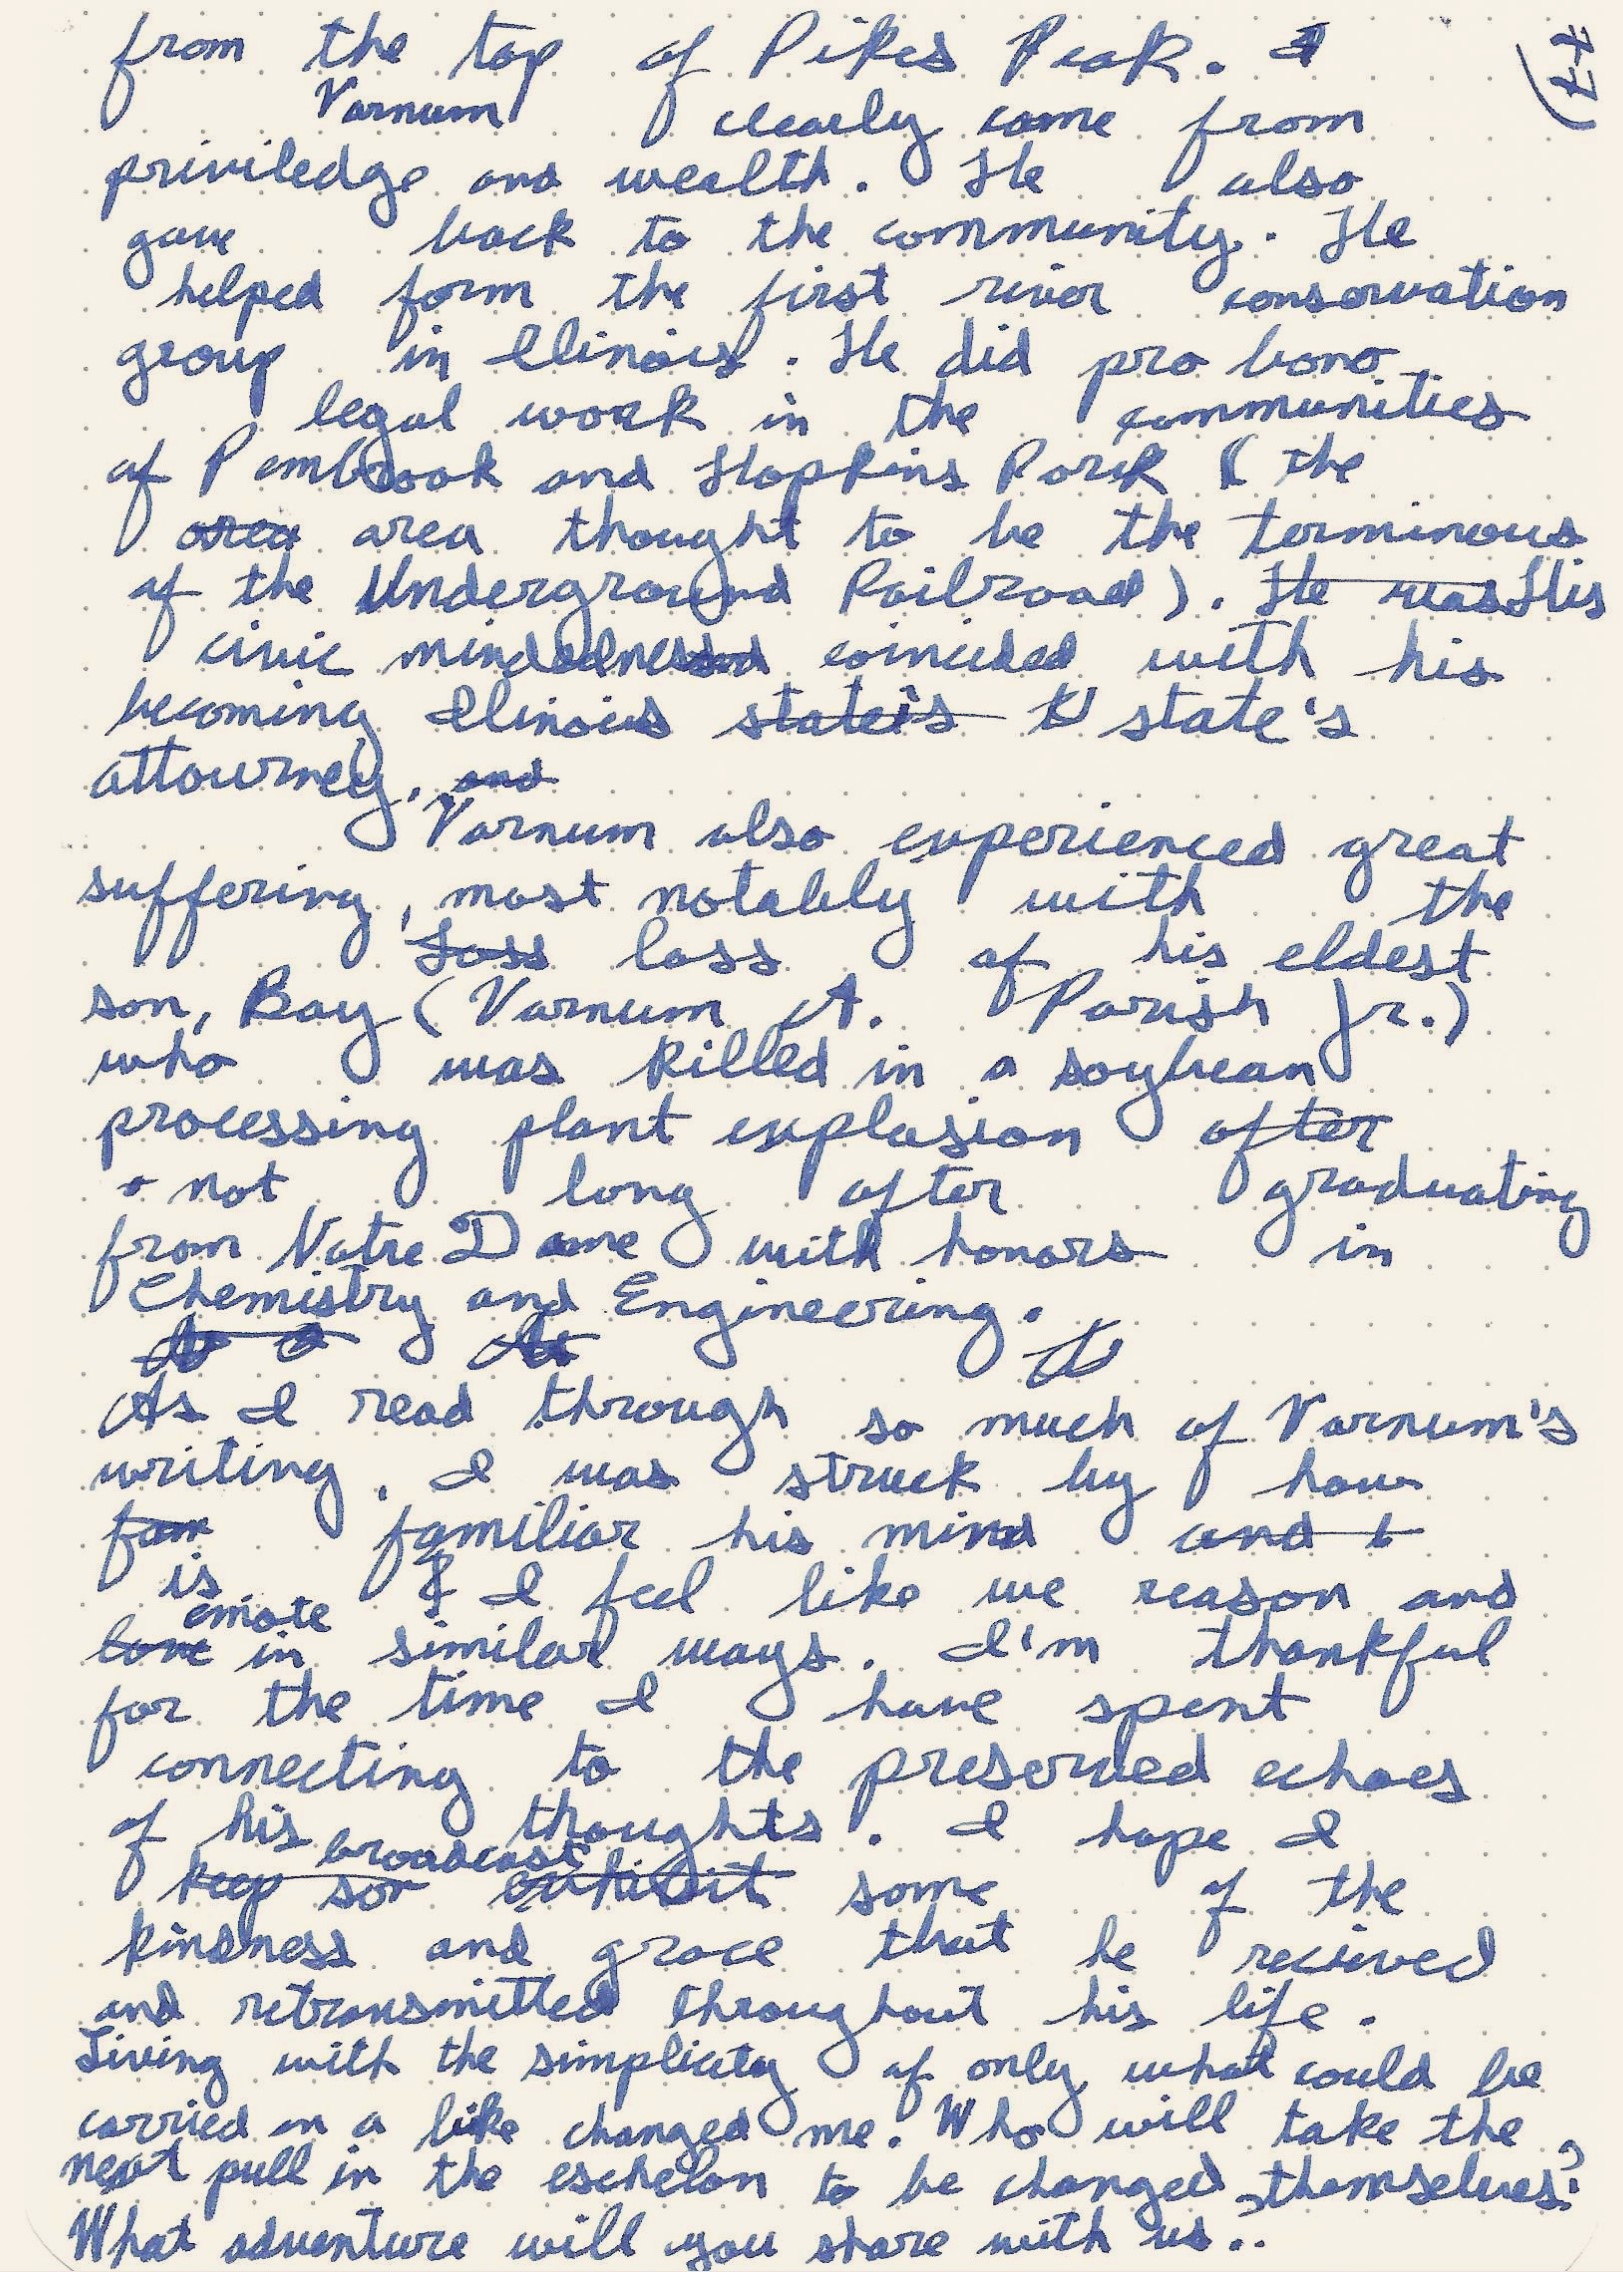 from the top of Pikes Peak.
Varnum clearly came from
priviledge and wealth. He also
gave back to the community. He
helped form the first river conservation
group in Illinois. He did pro bono
legal work in the communities
of Pembrook and Hopkins Park (the
area area thought to be the terminous
of the Underground Railroad). He was His
civic mindedness coincided with his
becoming Illinois state's state's
attourney. and
Varnum also experienced great
suffering, most notably with the
Loss loss of his eldest
son, Bay (Varnum A. Parish Jr.)
who was killed in a soybean
processing plant explosion after
not long after graduating
from Notre Dame with honors in
Chemistry and Engineering.
As I read through so much of Varnum's
writing, I was struck by how
fam familiar his mind and
is & I feel like we reason and
emote
love in similar ways. I'm thankful
for the time I have spent
connecting to the preserved echoes
of his thoughts. I hope I
broadcast
keep som exhibit some of the
kindness and grace that he recieved
and retransmitted throughout his life.
Living with the simplicity of only what could be
carried on a bike changed me. Who will take the
next pull in the eschelon to be changed, themselves?
What adventure will you share with us..